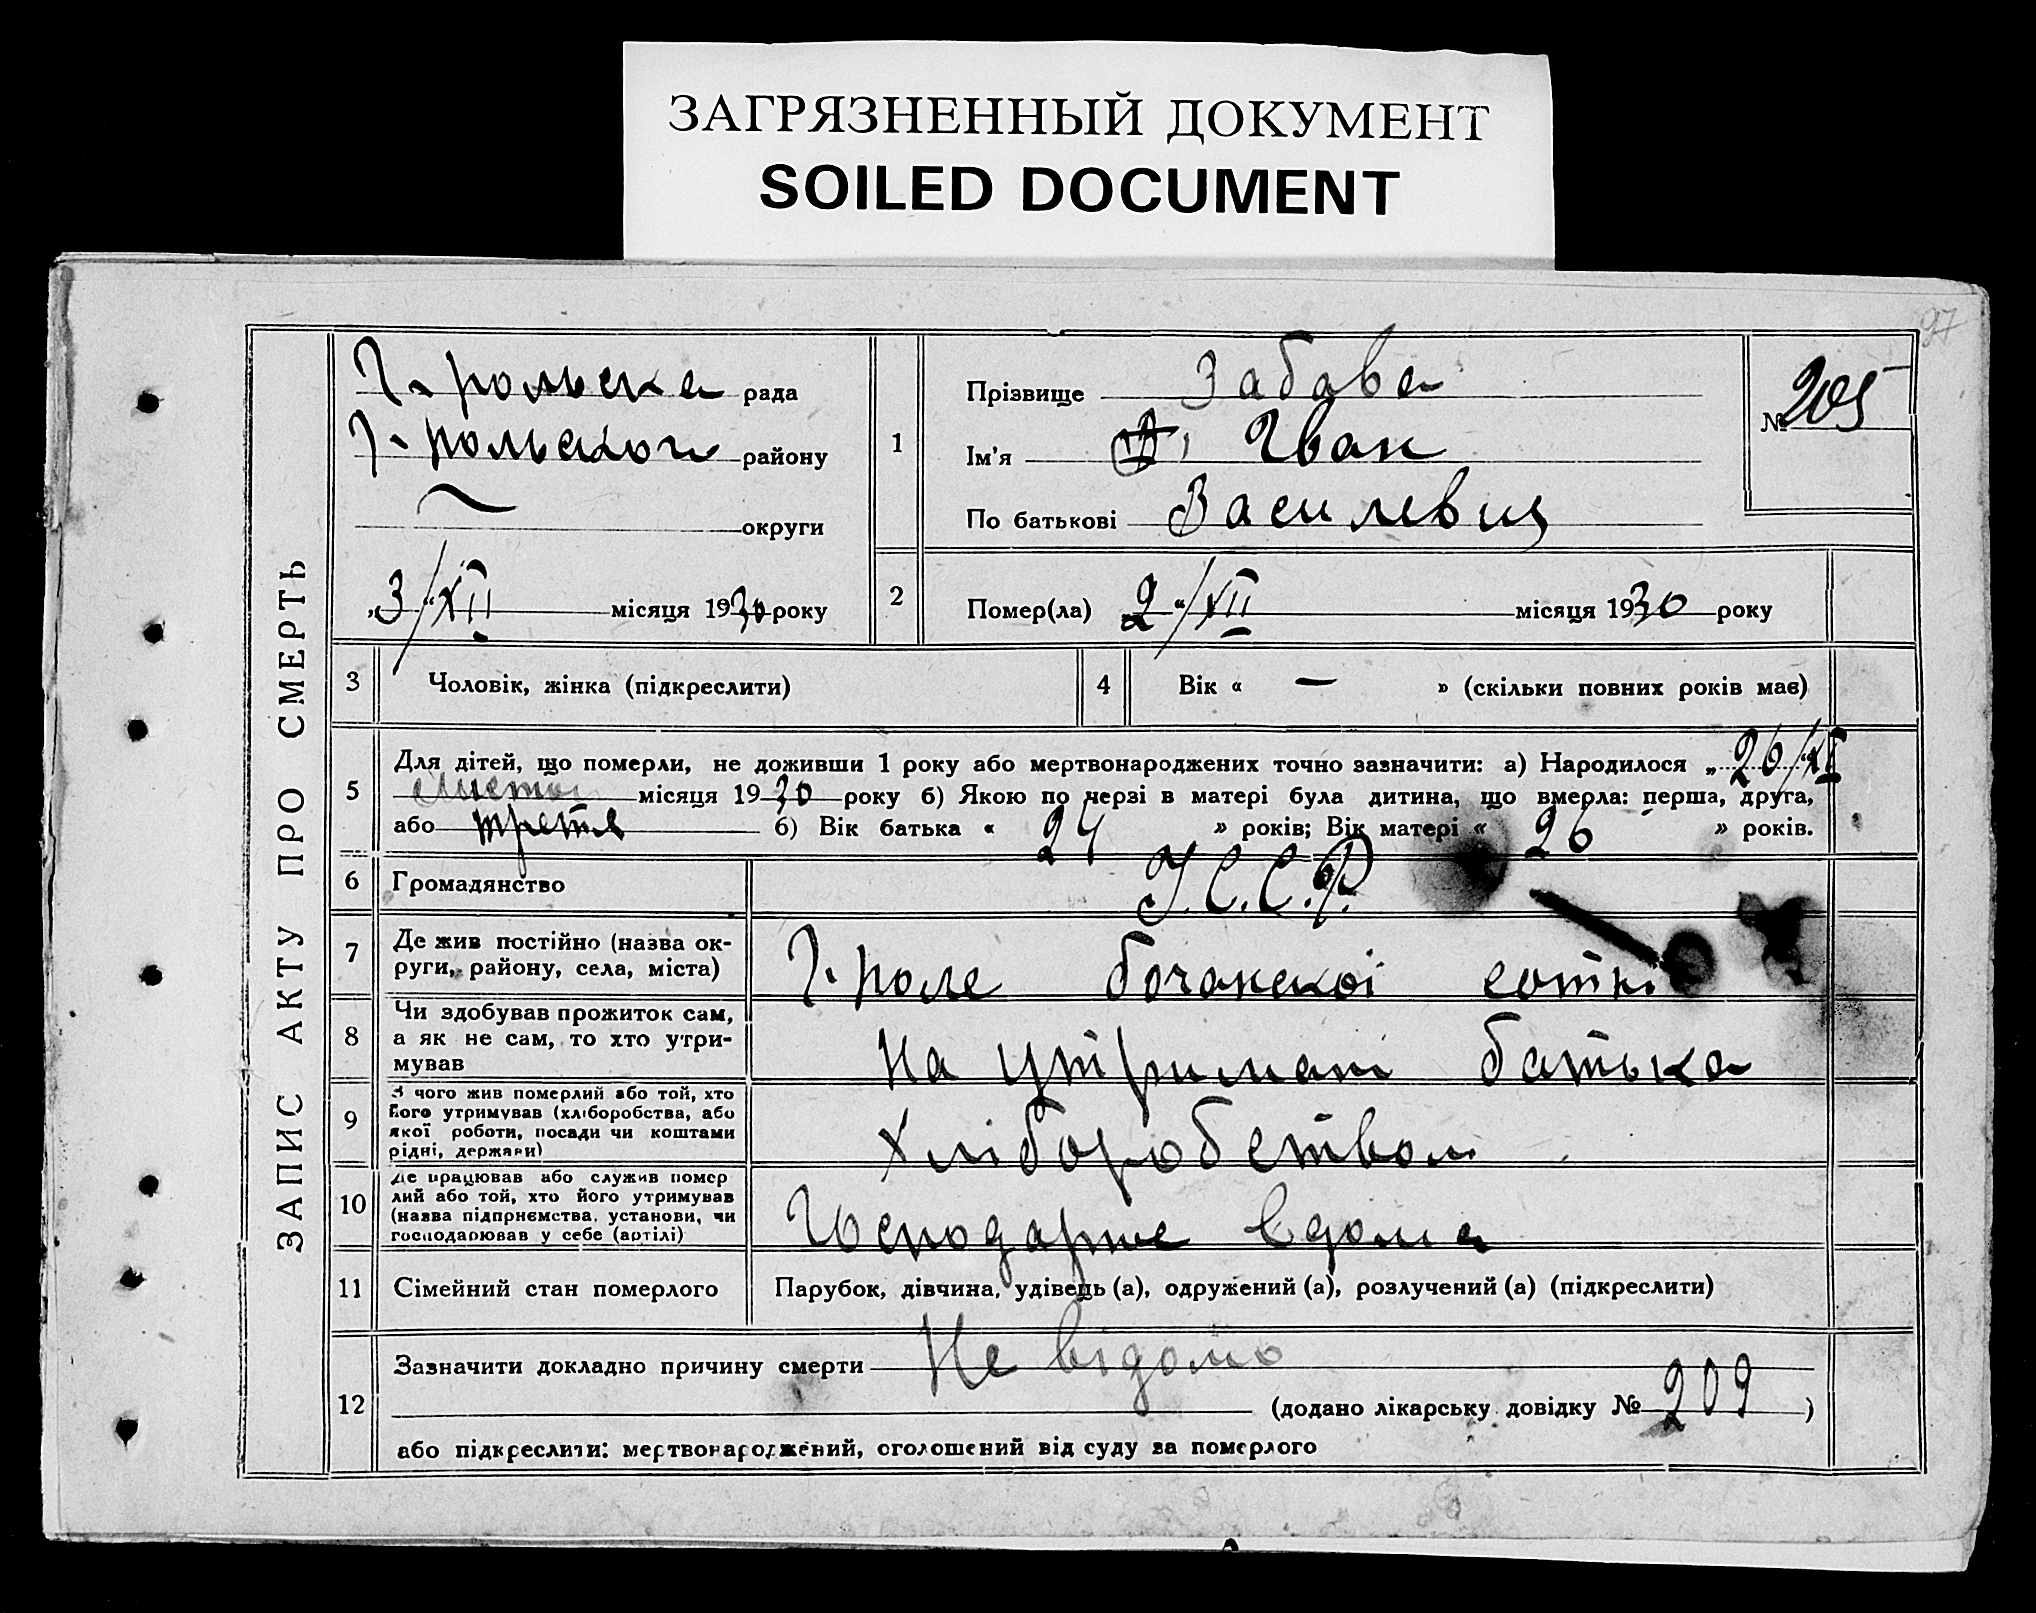 ЗАГРЯЗНЕННЫЙ ДОКУМЕНТ
SOILED DOCUMENT
97
ЗАПИС АКТУ ПРО СМЕРТЬ
Г-польска рада
Г-польского району
округи
„3/XII місяця 1930 року
1
Прізвище Забава
Ім'я Іван
По батькові Василевич
№ 205
2
Помер(ла) 2 „/XII місяця 1930 року
3 Чоловік, жінка (підкреслити)
4 Вік « — » (скільки повних років має)
5 Для дітей, що померли, не доживши 1 року або мертвонароджених точно зазначити: а) Народилося „26/XI
місяця 1930 року б) Якою по черзі в матері була дитина, що вмерла: перша, друга,
або третя б) Вік батька « 24 » років; Вік матері « 26 » років.
6 Громадянство У.С.С.Р.
7 Де жив постійно (назва ок-
руги, району, села, міста) Г-поле бочанскої сотні
8 Чи здобував прожиток сам,
а як не сам, то хто утри-
мував На утримані батька
9 З чого жив померлий або той, хто
його утримував (хліборобства, або
якої роботи, посади чи коштами
рідні, держави) Хліборобством
10 Де працював або служив помер
лий або той, хто його утримував
(назва підприємства, установи, чи
господарював у себе (артілі) Господарює вдома
11 Сімейний стан померлого Парубок, дівчина, удівець (а), одружений (а), розлучений (а) (підкреслити)
12 Зазначити докладно причину смерти Не відомо
(додано лікарську довідку № 209)
або підкреслити: мертвонароджений, оголошений від суду за померлого